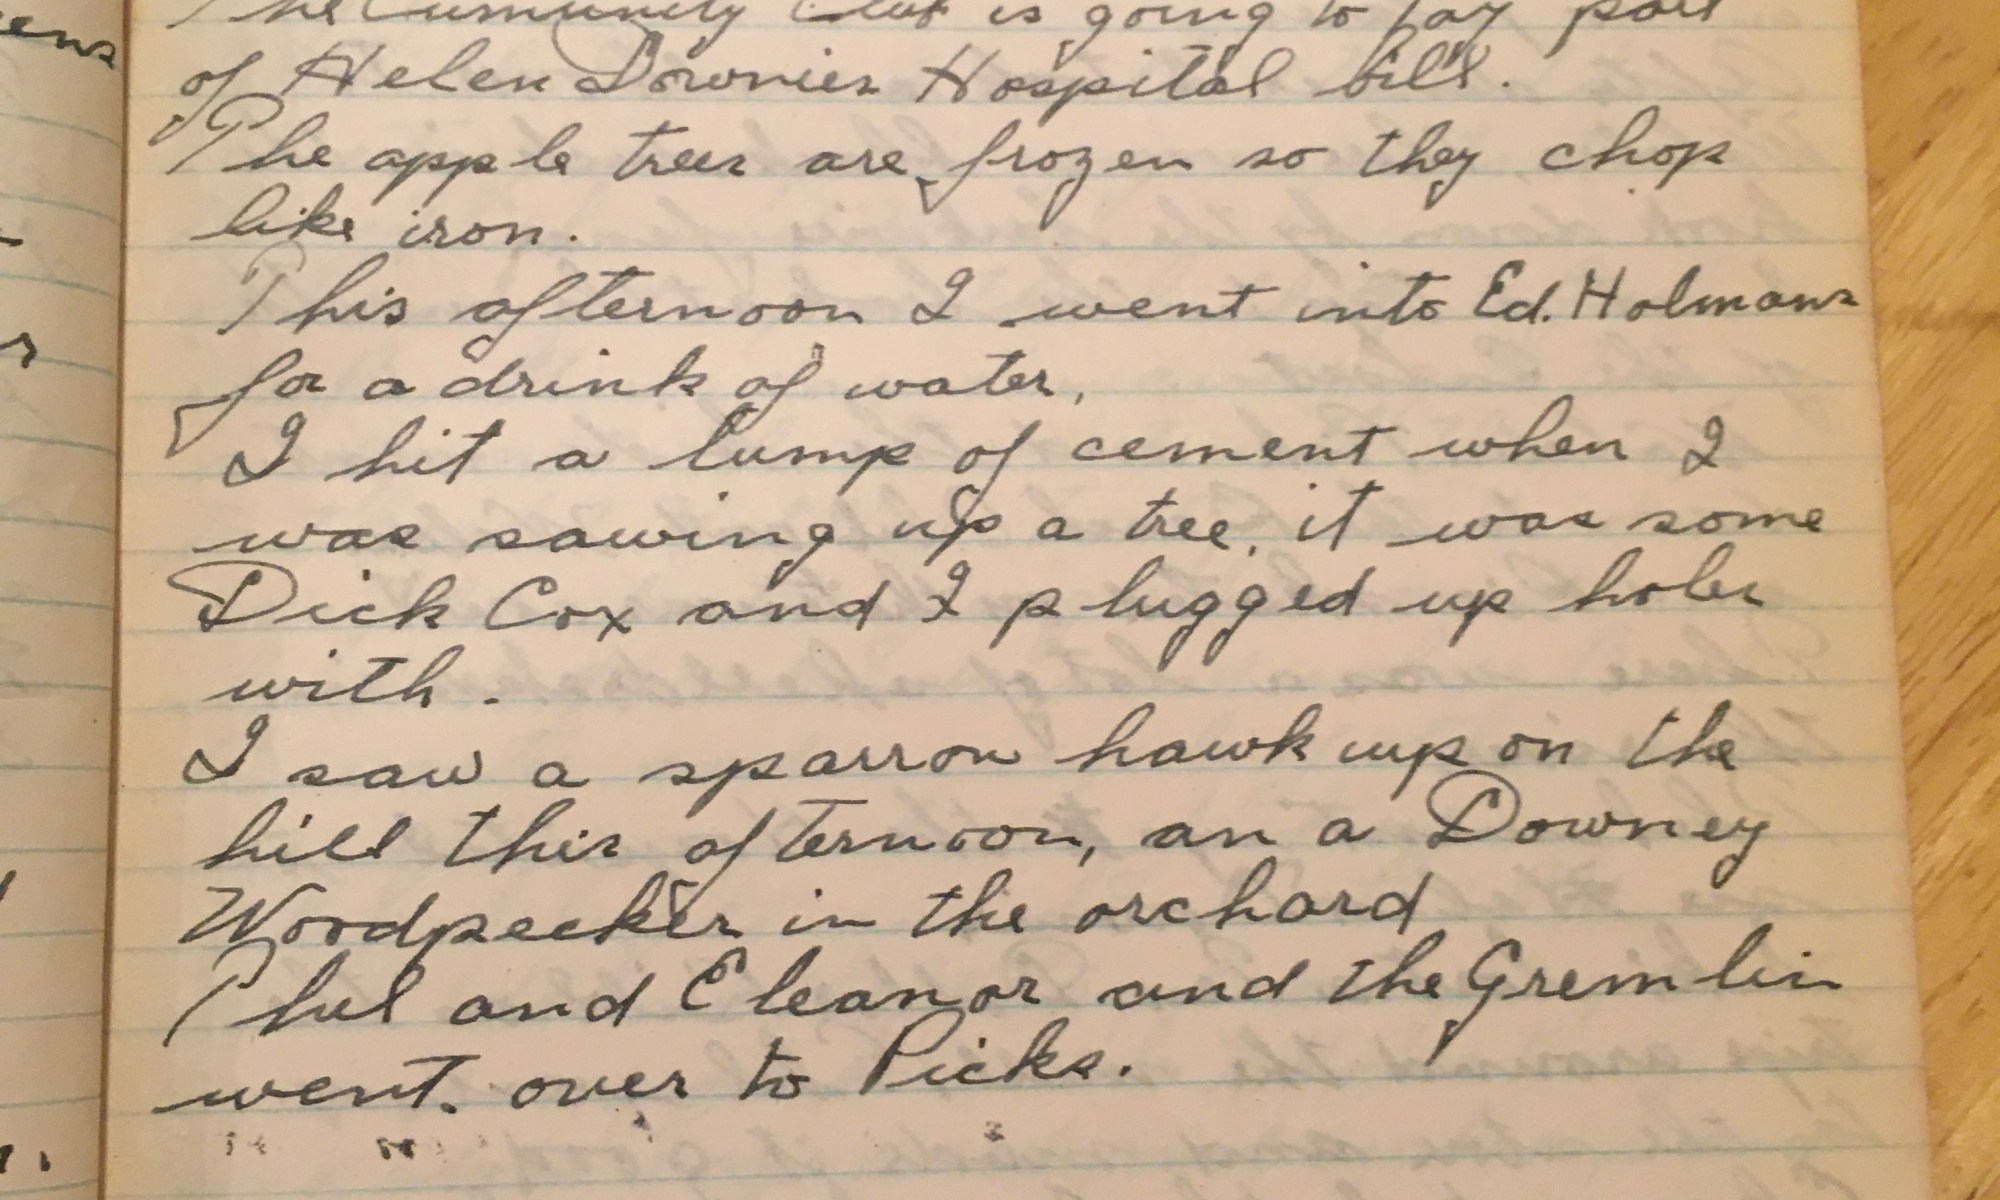 The Cumunity Club is going to pay part
of Helen Downies Hospital bill.
The apple trees are frozen so they chop
like iron.
This afternoon I went into Ed. Holmans
for a drink of water,
I hit a lump of cement when I
was sawing up a tree, it was some
Dick Cox and I plugged up holes
with.
I saw a sparrow hawk up on the
hill this afternoon, an a Downey
Woodpecker in the orchard
Phil and Eleanor and the Gremlin
went. over to Picks.